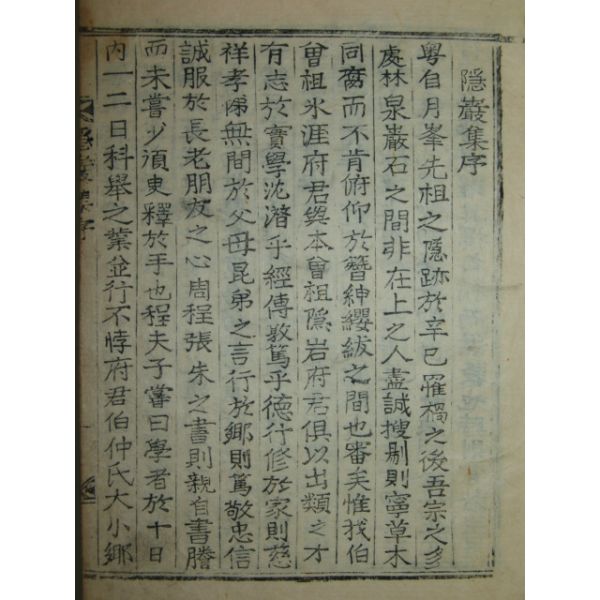 隱巖集序
粤自月峯先祖之隱跡於辛巳罹禍之後吾宗之多
處林泉巖石之間非在上之人盡誠搜剔則寧草木
同腐而不肯俯仰於簪紳纓紱之間也審矣惟我伯
曾祖氷涯府君與本曾祖隱岩府君俱以出類之才
有志於實學沈潛乎經傳敦篤乎德行修於家則慈
祥孝悌無間於父母昆弟之言行於鄕則篤敬忠信
誠服於長老朋友之心周程張朱之書則親自書謄
而未嘗少須臾釋於手也程夫子嘗曰學者於十日
內一二日科舉之業並行不悖府君伯仲氏大小鄕
隱巖集序